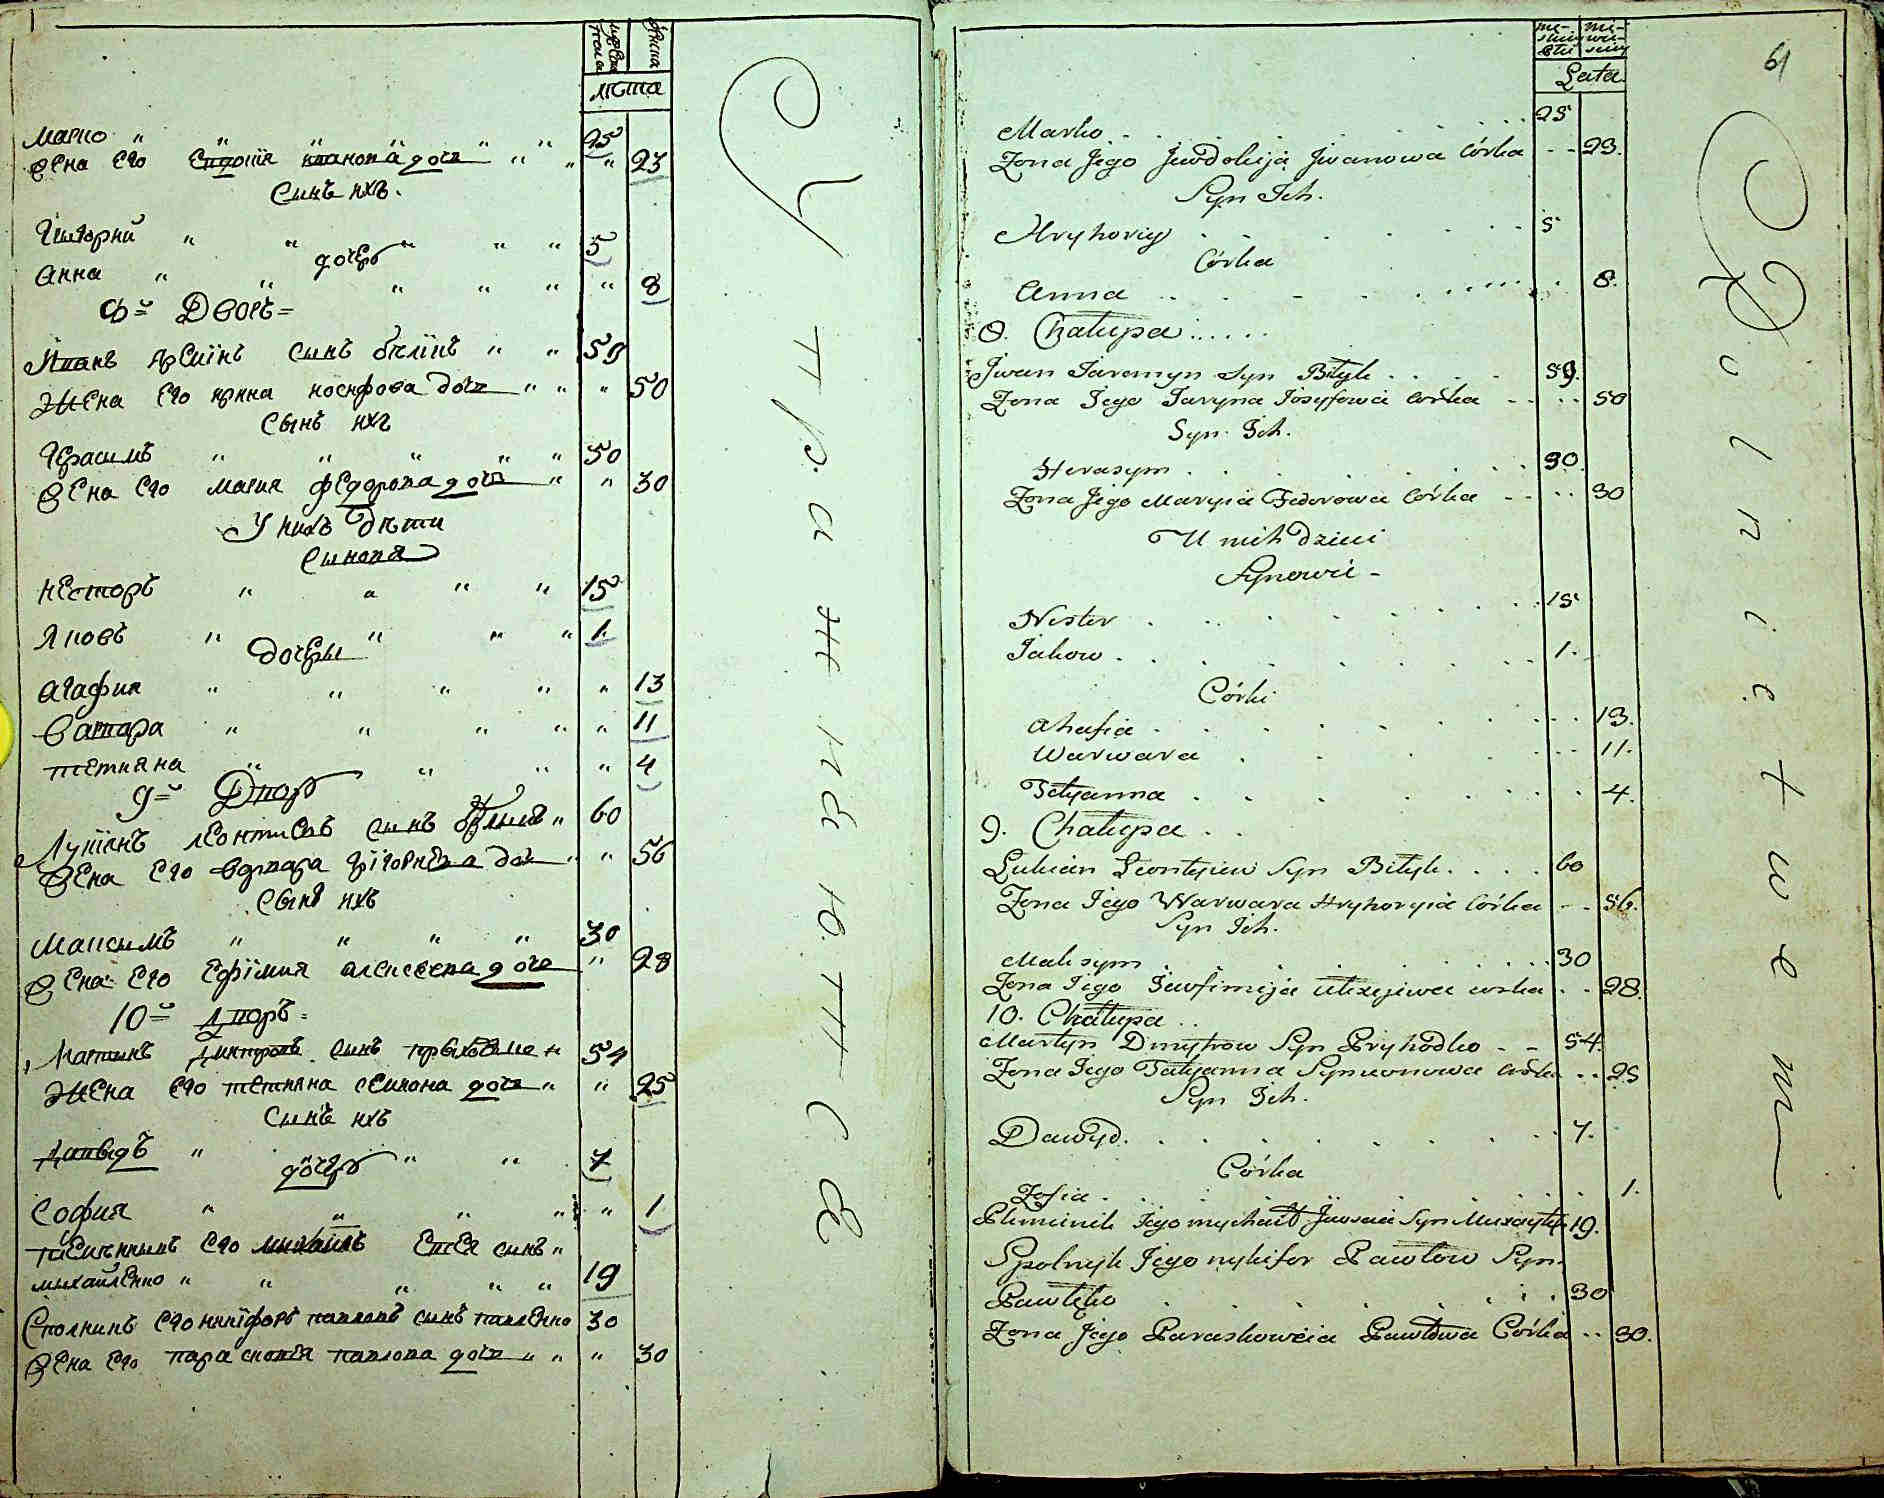 мужеска пола
женска
лѣта
Марко " " " " " " 25
жена его Евдокія Иванова дочь " " " " 23
Сынъ ихъ.
Григорий " " " " " 5
дочерь
Анна " " " " " " 8
8й Дворъ
Иванъ Яреминъ сынъ Бѣликъ " " 59
Жена его Ярина Иосифова дочь " " " 50
Сынъ ихъ
Герасимъ " " " " " 30
жена его Мария Федорова дочь " " 30
У нихъ дѣти
Сынова
Несторъ " " " " 15
Яковъ " " " " 1.
дочеры
Агафия " " " " " 13
Варвара " " " " " 11
Тетияна " " " " 4
9й Дворъ
Лукіянъ Леонтиевъ сынъ Бѣликъ " 60
жена его Варвара Григориева дочь " " 56
Сынъ ихъ
Максимъ " " " " 30
жена его Ефимия Алексеева дочь " 28
10й Дворъ
Мартинъ Дмитровъ сынъ Приходко " 54
Жена его Тетияна Семионова дочь " " 25
Сынъ ихъ
Давидъ " " " 7
дочерь
София " " " " " 1
племѣнникъ его Михаилъ Евсея сынъ "
Михайленко " " " " " 19
Сполникъ его Никифоръ Павловъ сынъ Павленко 30
жена его Парасковія Павлова дочь " " " 30
У п р а ж н е н ї и т с в е
mę-skiey płci
mę-wie-skiey
Lata.
61
Marko . . . . . . . . 25
Zona Jego Jewdokija Jwanowa Córka - - 23.
Syn Ich.
Hryhoriy . . . . . . . 5
Córka
Anna . . . . . . . . 8.
8. Chałupa . . . . .
Jwan Jaremyn Syn Biłyk . . . . 59.
Zona Jego Jaryna Josyfowa Córka - - . . 50
Syn Ich.
Herasym . . . . . . . 30.
Zona Jego Maryia Fedorowa Córka - - . . 30
U nich dzieci
Synowie -
Nester . . . . . . . . 15
Jakow . . . . . . . . 1.
Córki
Ahafia . . . . . . . . 13.
Warwara . . . . . . . 11.
Tetyanna . . . . . . . 4.
9. Chałupa . .
Łukian Leontyiew Syn Biłyk . . . . 60
Zona Jego Warwara Hryhoryia Córka - - 56.
Syn Ich.
Maksym . . . . . . . . 30
Zona Jego Jawfimija Alexyiwa Córka . . 28.
10. Chałupa . .
Martyn Dmytrow Syn Pryhodko - - 54.
Zona Jego Tatyanna Symeonowa Córka . . 25
Syn Ich.
Dawyd. . . . . . . . . 7.
Córka
Zofia . . . . . . . . 1.
Plemienik Jego Mychaił Jiwseia Syn 19.
Spolnyk Jego Nykifor Pawłow Syn.
Pawłęko . . . . . . . . 30
Zona Jego Paraskoweia Pawłowa Córka . . 30.
R o l n i c t w e m